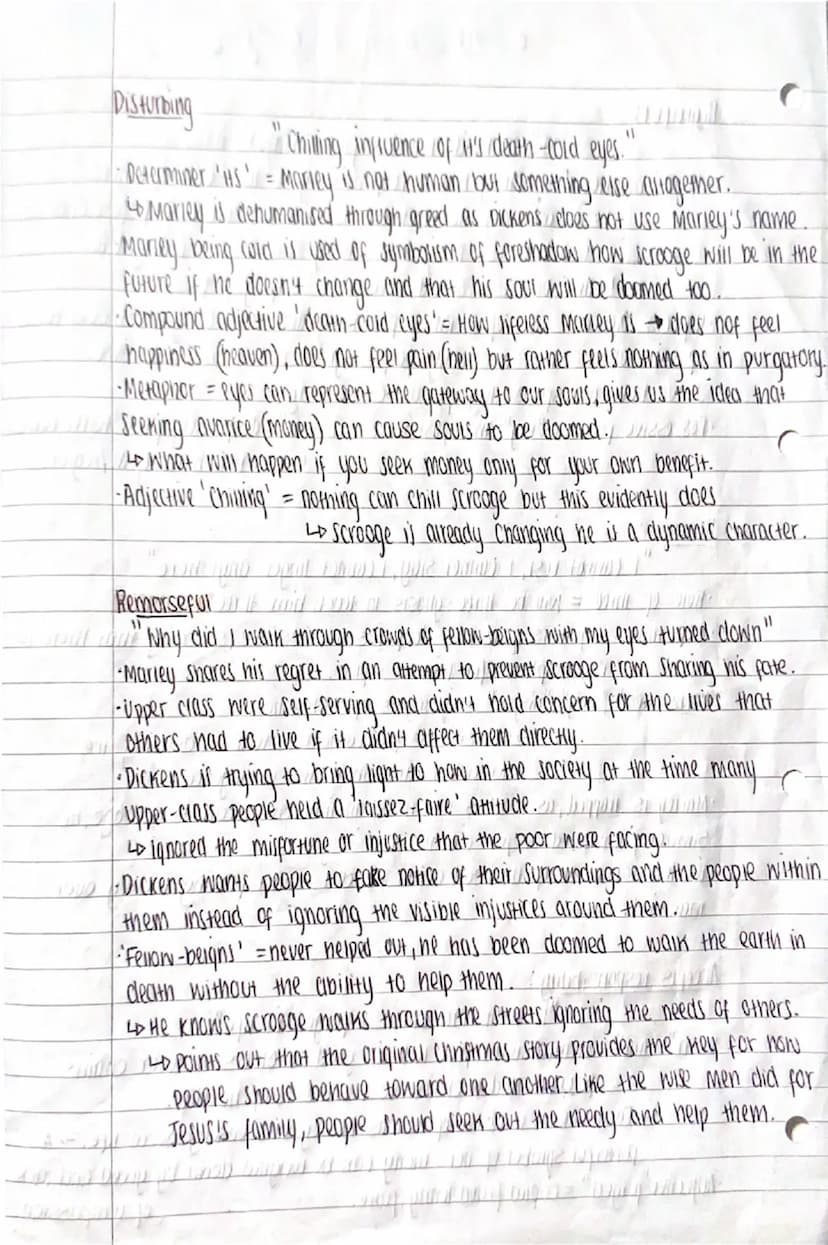 Disturbing
"Chilling influence of it's death-cold eyes."
· Determiner 'its' = Marley is not human but something else altogether.
↳ Marley is dehumanised through greed as Dickens does not use Marley's name.
Marley being cold is used of symbolism of foreshadow how scrooge will be in the
future if he doesn't change and that his soul will be doomed too.
· Compound adjective 'death-cold eyes' = How lifeless Marley is → does not feel
happiness (heaven), does not feel pain (hell) but rather feels nothing as in purgatory.
· Metaphor = eyes can represent the gateway to our souls, gives us the idea that
seeking avarice (money) can cause souls to be doomed.
↳ What will happen if you seek money only for your own benefit.
· Adjective 'chilling' = nothing can chill scrooge but this evidently does
↳ scrooge is already changing he is a dynamic character.
Remorseful
"Why did I walk through crowds of fellow-beigns with my eyes turned down"
· Marley shares his regret in an attempt to prevent scrooge from sharing his fate.
· Upper class were self-serving and didn't hold concern for the lives that
others had to live if it didn't affect them directly.
· Dickens is trying to bring light to how in the society at the time many
upper-class people held a 'laissez-faire' attitude.
↳ ignored the misfortune or injustice that the poor were facing.
· Dickens wants people to take notice of their surroundings and the people within
them instead of ignoring the visible injustices around them.
· 'Fellow-beigns' = never helped out, he has been doomed to walk the earth in
death without the ability to help them.
↳ He knows scrooge walks through the streets ignoring the needs of others.
↳ points out that the original christmas story provides the key for how
people should behave toward one another. Like the wise men did for
Jesus's family, people should seek out the needy and help them.